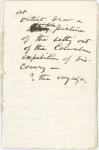 at
outset draw a
picture
of the setting out
of the Columbus
expedition of dis-
covery —
? the voyage.